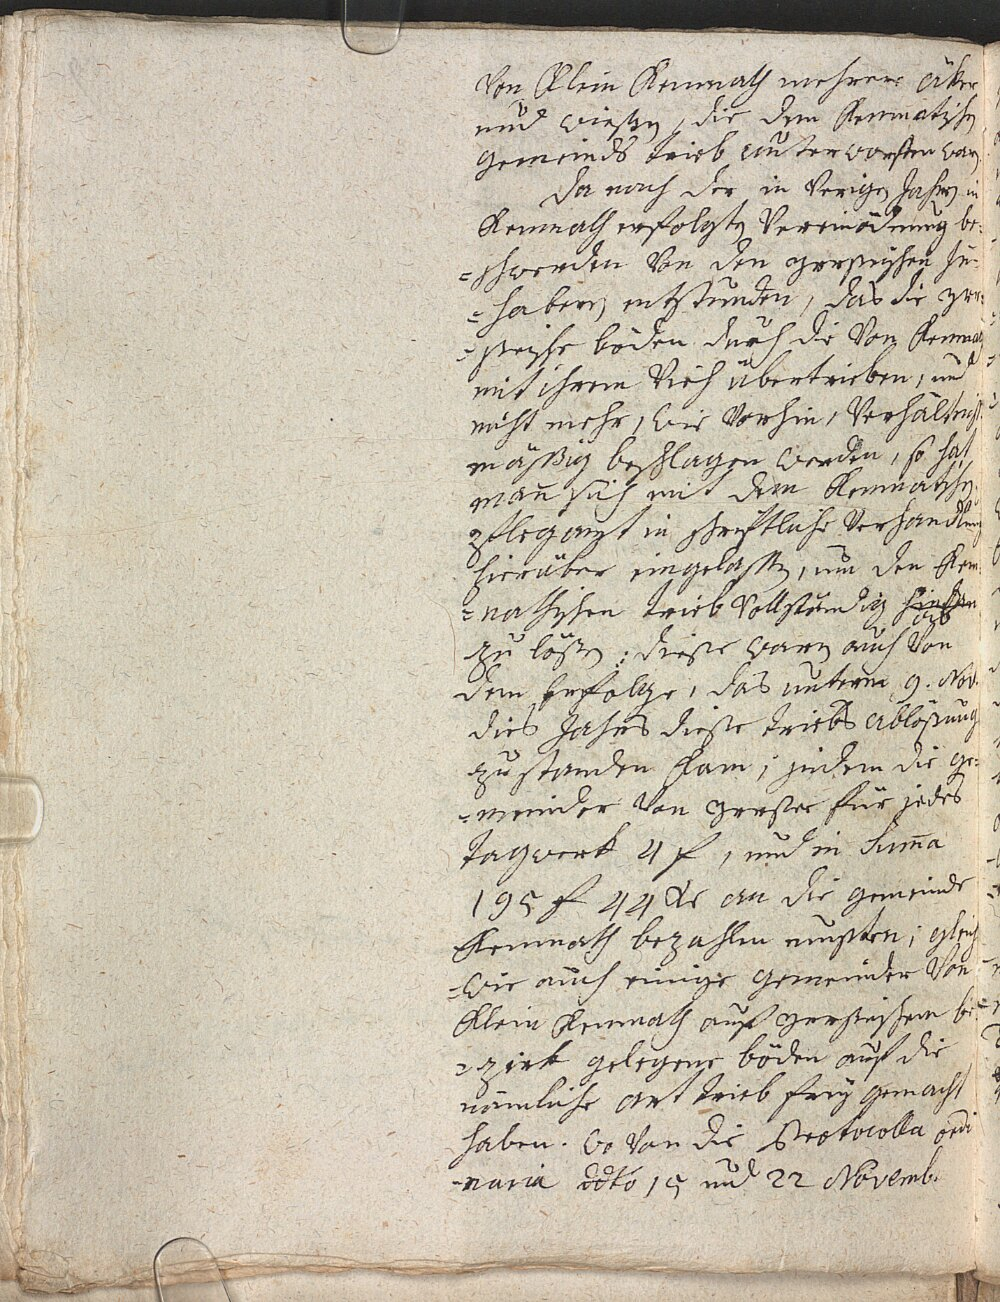 von Klein Kemnath mehrere äker
und wießen, die dem Kemnatischen
gemeinds trieb unterworffen waren
Da nach der in vorigen Jahren in
Kemnath erfolgten Vereinödnung be=
=schwerden von den
=habern entstunden, das die
böden durch die von Kemnat
mit ihrem Vieh übertrieben, und
nicht mehr, wie vorhin, Verhältniß
mäßig beschlagen werden, so hat
man sich mit dem Kemnatischen
pflegamt in schriftliche Verhandlung
hierüber eingelassen, um den Kem
=nathischen trieb vollständig ab
zu lößen; dieße waren auch von
dem Erfolge, das unterm 9. Nov.
dies Jahrs dieße triebs ablößung
zu standen kam; indem die ge=
=meinder von für jedes
tagwerk 4 f, und in Suma
195 f 44 xr an die gemeinde
Kemnath bezahlen mußten; gleich
=wie auch einige gemeinder von
Klein Kemnath auf be=
=zirk gelegene böden auf die
nämliche art trieb frey gemacht
haben. wo von die Protocolla ordi
=naria ddto 15 und 22 Novemb.